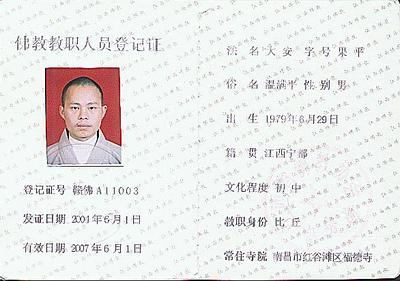 佛教教职人员登记证
登记证号 赣佛A11003
发证日期 2004年6月1日
有效日期 2007年6月1日
法 名 大安 字号 果平
俗 名 温满平 性 别 男
出 生 1979年6月29日
籍 贯 江西宁都
文化程度 初 中
教职身份 比 丘
常住寺院 南昌市红谷滩区福德寺